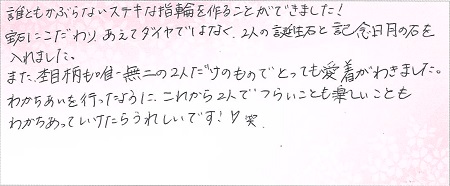 誰ともかぶらないステキな指輪を作ることができました!
宝石にこだわり、あえてダイヤではなく、2人の誕生石と記念日月の石を
入れました。
また、杢目柄も唯一無二の2人だけのものでとっても愛着がわきました。
わかちあいを行ったように、これから2人でつらいことも楽しいことも
わかちあっていけたらうれしいです!♡笑